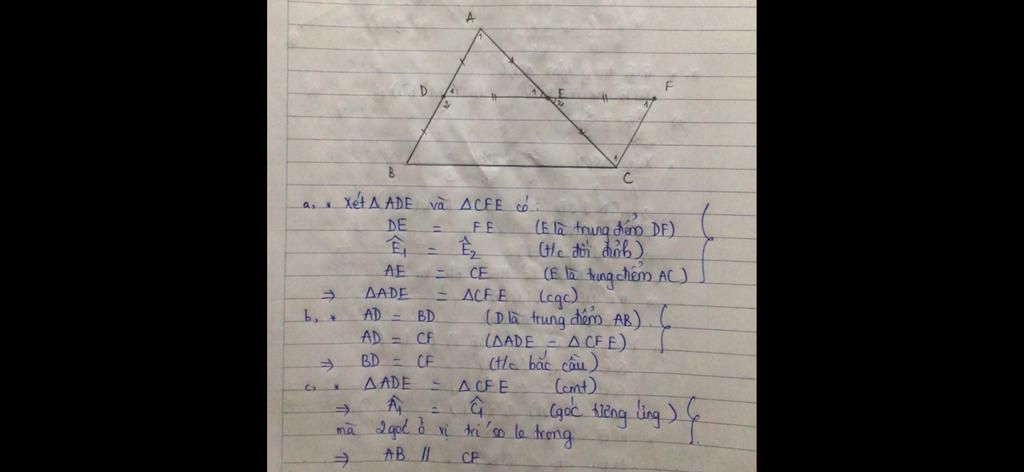 A
1
D 1 1 E F
2 2 1
1
B C
a, * Xét Δ ADE và Δ CFE có:
DE = FE (E là trung điểm DF)
Ê1 = Ê2 (t/c đối đỉnh)
AE = CE (E là trung điểm AC)
⇒ ΔADE = ΔCFE (cgc)
b, * AD = BD (D là trung điểm AB)
AD = CF (ΔADE = ΔCFE)
⇒ BD = CF (t/c bắc cầu)
c, * ΔADE = ΔCFE (cmt)
⇒ Â1 = Ĉ1 (góc tương ứng)
mà 2 góc ở vị trí so le trong
⇒ AB // CF